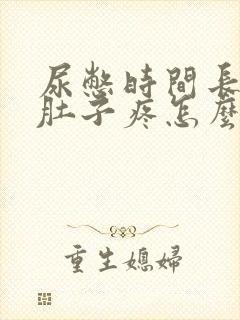 尿憋時間長
肚子疼怎麼
重生媳婦